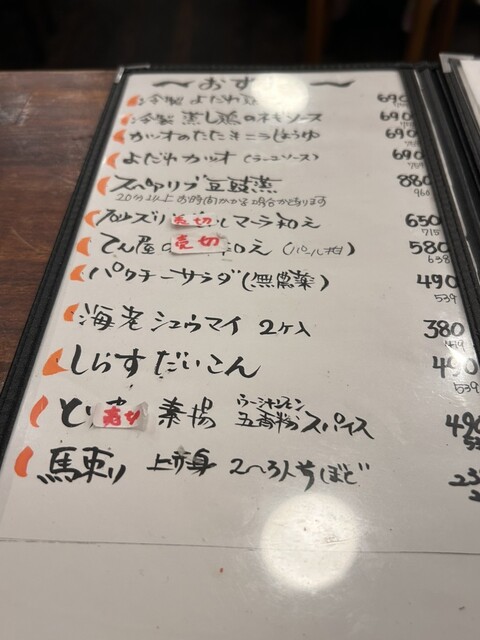 〜おす 〜
冷製 よだれ 690
冷製 蒸し鶏のネギソース 690
カツオのたたきニラしょうゆ 690
よだれカツオ(ラー油ソース) 690
スペアリブ豆豉蒸 880
20分以上お時間かかる場合があります 968
売切 マーラ和え 650
715
売切 和え 580
638
パクチーサラダ(無農薬) 490
539
海老シュウマイ 2ヶ入 380
しらすだいこん 490
539
と 売切 素揚 ウーシャンフェン 五香粉スパイス 490
馬刺り 上赤身 2〜3人ちほど